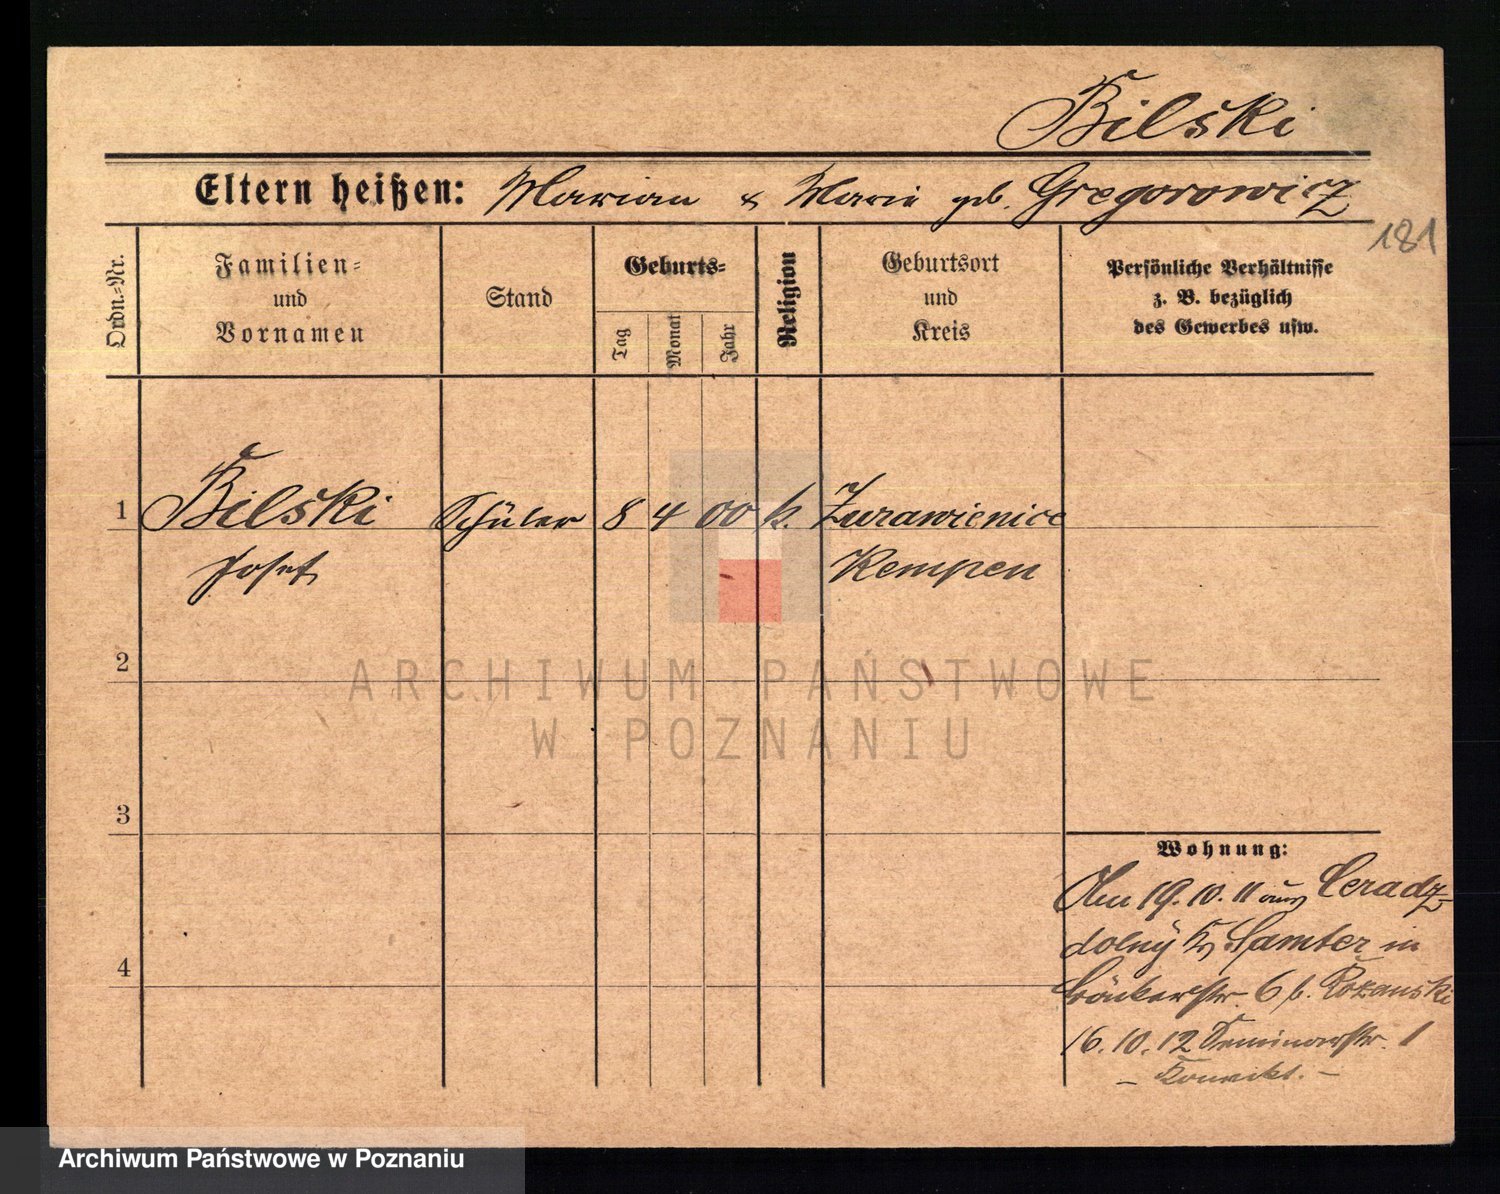 Bilski
Eltern heißen: Marian & Marie geb. Gregorowicz
181
Ordn.-Nr.
Familien-
und
Vornamen
Stand
Geburts-
Tag
Monat
Jahr
Religion
Geburtsort
und
Kreis
Persönliche Verhältnisse
z. B. bezüglich
des Gewerbes usw.
1 Bilski Schüler 8 4 00 k. Zurawienice
Josef Kempen
2
3
4
Wohnung:
Am 19. 10. 11 aus Ceradz
dolny Kr Samter in
Bäckerstr. 6 b. Rozanski
16. 10. 12 Seminarstr. 1
– Konvikt. –
ARCHIWUM PAŃSTWOWE
W POZNANIU
Archiwum Państwowe w Poznaniu